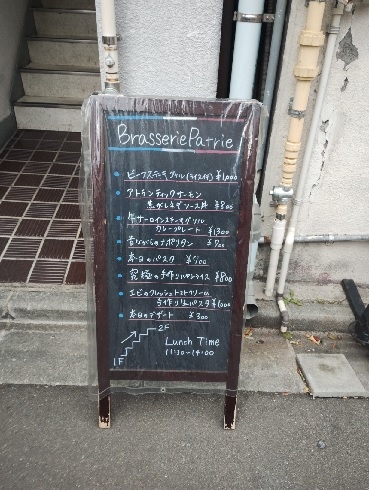 BrasseriePatrie
ビーフステーキグリル(ライス付) ¥1,000
アトランティックサーモン
焦がしネギソース丼 ¥800
牛サーロインステーキグリル
クレープレート ¥1300
昔ながらのナポリタン ¥700
本日のパスタ ¥700
究極の手作り ¥800
エビのフレッシュトマトクリーム
手作り生パスタ ¥1000
本日のデザート ¥300
2F
Lunch Time
11:30-14:00
1F